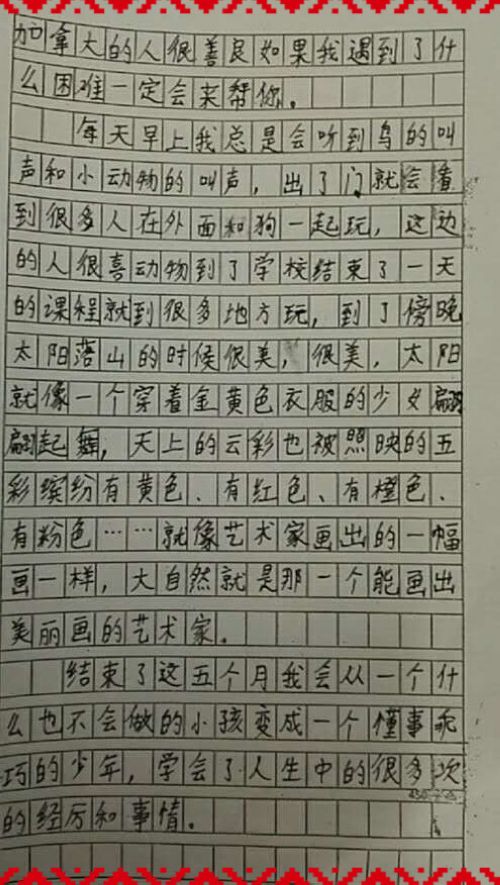 加拿大的人很善良如果我遇到了什
么困难一定会来帮你。
每天早上我总是会听到鸟的叫
声和小动物的叫声，出了门就会看
到很多人在外面和狗一起玩，这边
的人很喜动物到了学校结束了一天
的课程就到很多地方玩，到了傍晚
太阳落山的时候很美，很美，太阳
就像一个穿着金黄色衣服的少女翩
翩起舞，天上的云彩也被照映的五
彩缤纷有黄色、有红色、有橙色、
有粉色……就像艺术家画出的一幅
画一样，大自然就是那一个能画出
美丽画的艺术家。
结束了这五个月我会从一个什
么也不会做的小孩变成一个懂事乖
巧的少年，学会了人生中的很多次
的经历和事情。